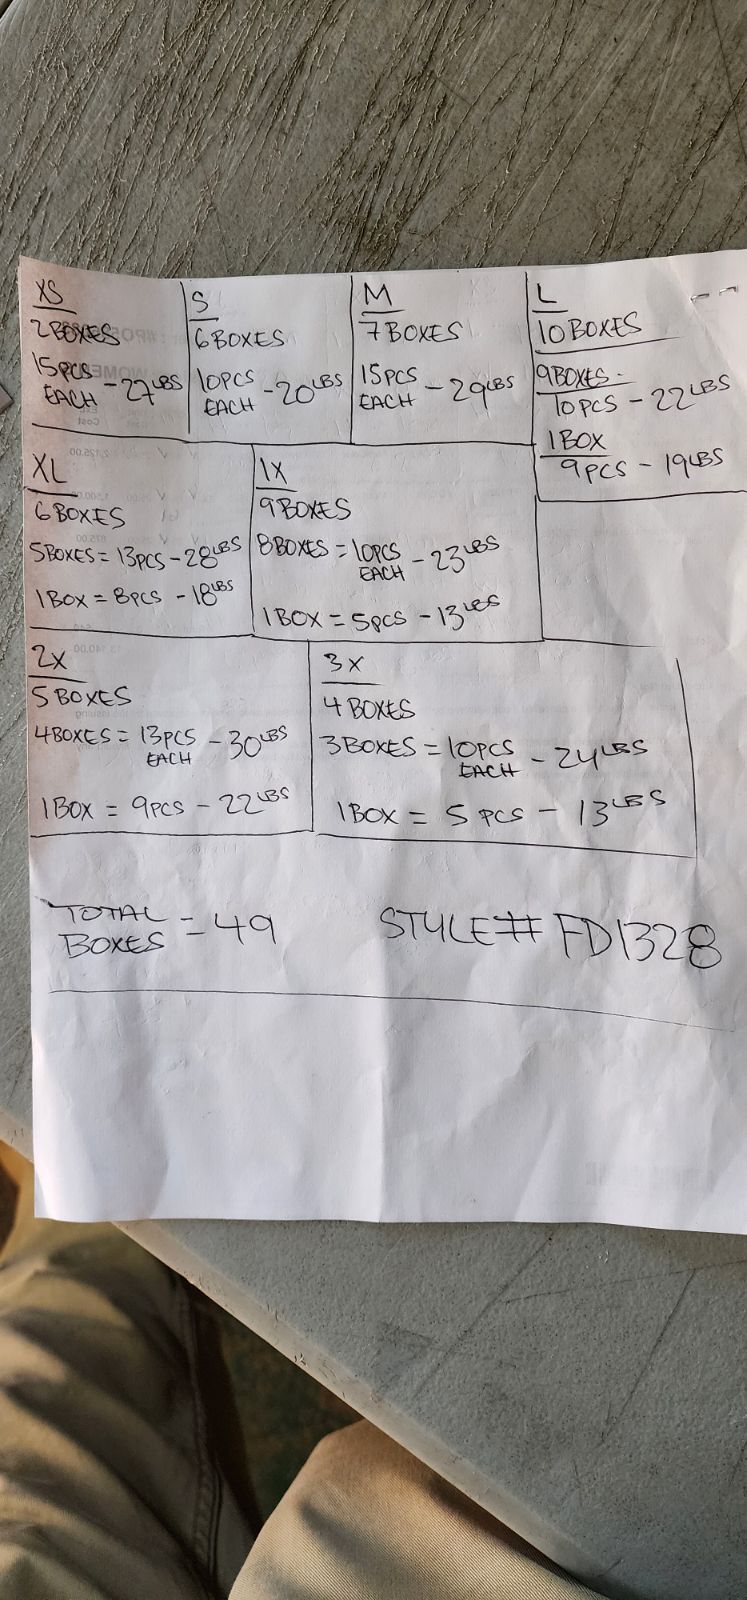 XS
2 BOXES
15PCS
EACH - 27LBS
S
6 BOXES
10PCS
EACH - 20LBS
M
7 BOXES
15PCS
EACH - 29LBS
L
10 BOXES
9 BOXES
10PCS - 22LBS
1 BOX
9PCS - 19LBS
XL
6 BOXES
5 BOXES = 13PCS - 28LBS
1 BOX = 8PCS - 18LBS
1X
9 BOXES
8 BOXES = 10PCS
EACH - 23LBS
1 BOX = 5PCS - 13LBS
2X
5 BOXES
4 BOXES = 13PCS
EACH - 30LBS
1 BOX = 9PCS - 22LBS
3X
4 BOXES
3 BOXES = 10PCS
EACH - 24LBS
1 BOX = 5 PCS - 13LBS
TOTAL
BOXES = 49
STYLE# FD1328